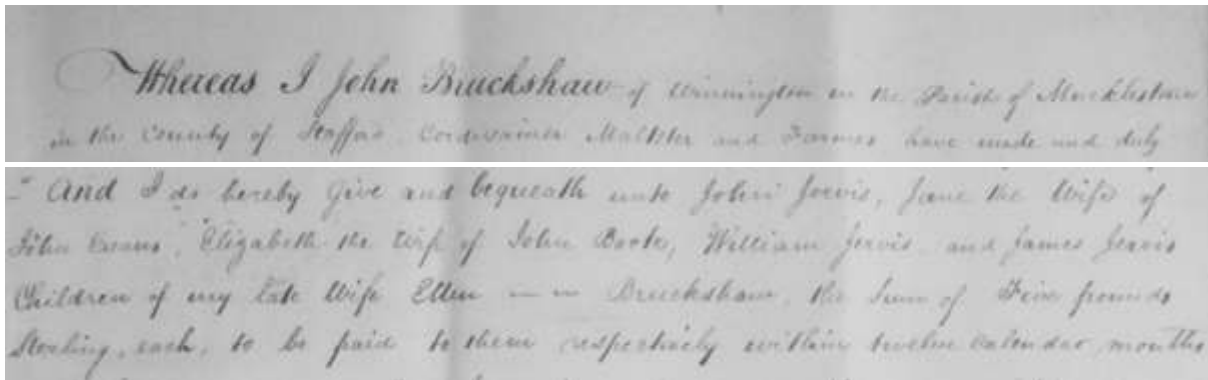 Whereas I John Bruckshaw of Winnington in the Parish of Mucklestone
in the County of Stafford Cordwainer Maltster and Farmer, have made and duly
- And I do hereby Give and bequeath unto John Jervis, Jane the Wife of
John Evans, Elizabeth the Wife of John Boote, William Jervis and James Jervis
Children of my late Wife Ellen — — Bruckshaw, the Sum of Five pounds
Sterling, each, to be paid to them respectively within twelve Calendar months